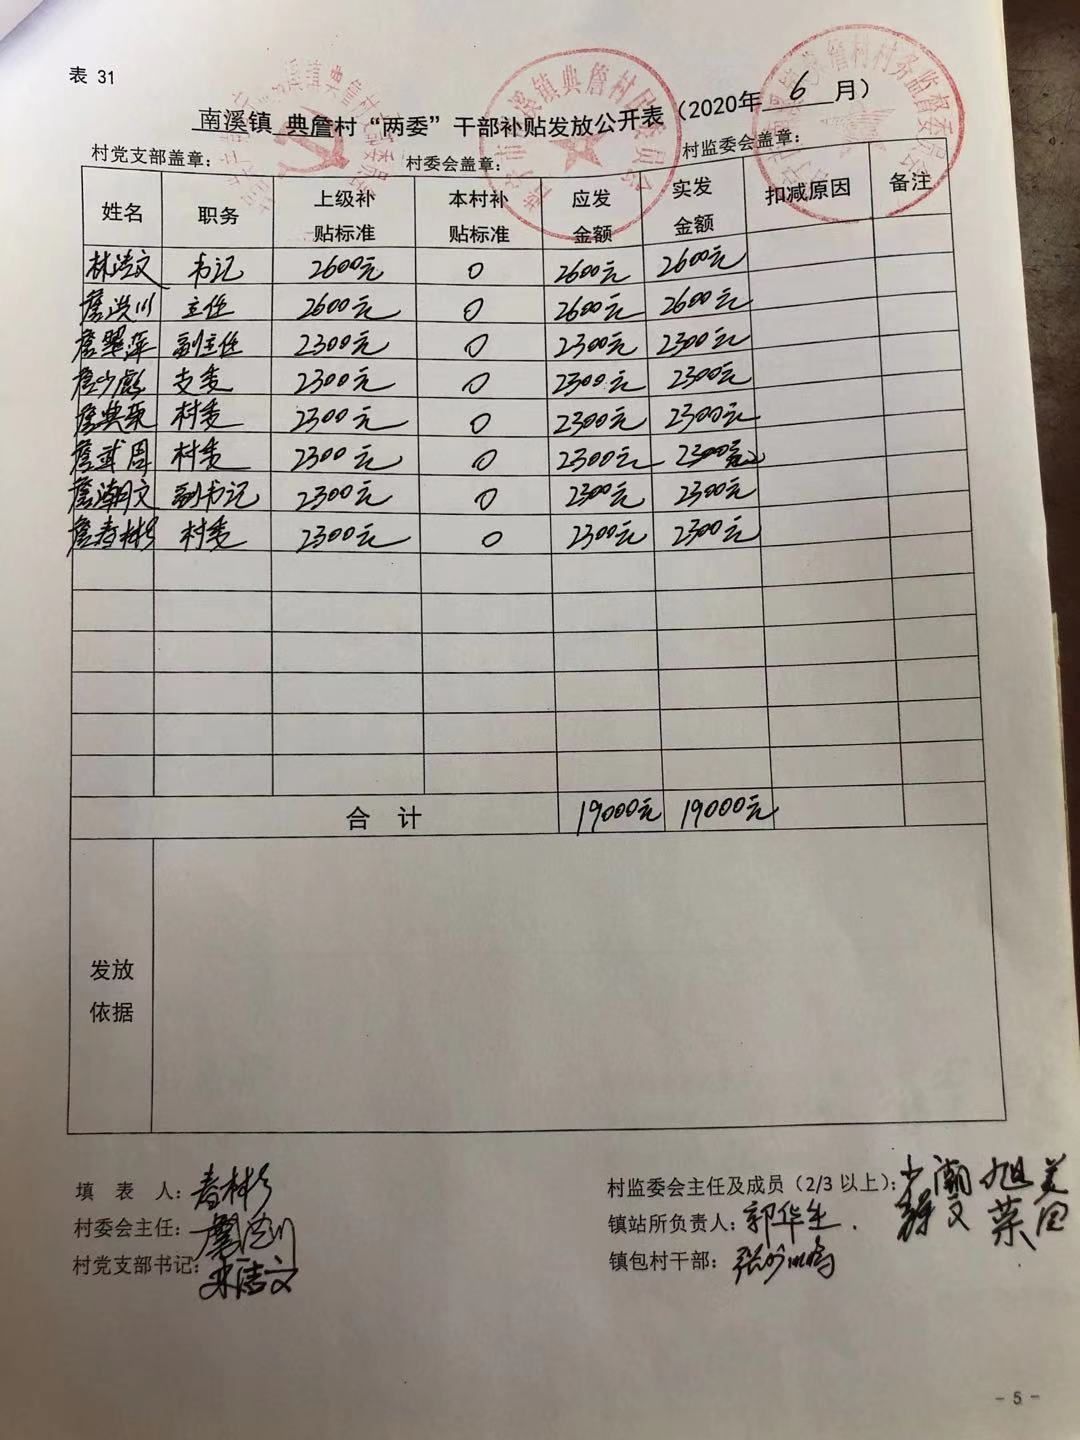 表 31
南溪镇 典詹村“两委”干部补贴发放公开表（2020年 6 月）
村党支部盖章： 村委会盖章： 村监委会盖章：
姓名 职务 上级补贴标准 本村补贴标准 应发金额 实发金额 扣减原因 备注
林浩文 书记 2600元 0 2600元 2600元
詹洪川 主任 2600元 0 2600元 2600元
詹翠萍 副主任 2300元 0 2300元 2300元
詹少彪 支委 2300元 0 2300元 2300元
詹典 村委 2300元 0 2300元 2300元
詹武周 村委 2300元 0 2300元 2300元
詹潮文 副书记 2300元 0 2300元 2300元
詹春彬 村委 2300元 0 2300元 2300元
合 计 19000元 19000元
发放依据
填 表 人：春彬
村委会主任：詹洪川
村党支部书记：林浩文
村监委会主任及成员（2/3 以上）：
镇站所负责人：郭华生
镇包村干部：张
- 5 -